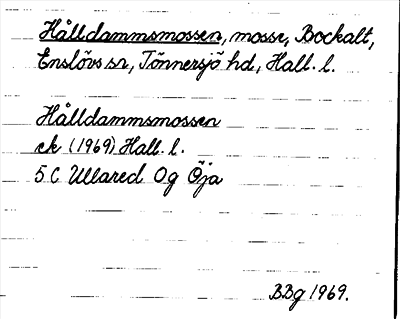 Hålldammsmossen, mosse, Bockalt,
Enslövs sn, Tönnersjö hd, Hall. l.
Hålldammsmossen
ek (1969) Hall. l.
5 C Ullared Og Öja
BBg 1969.